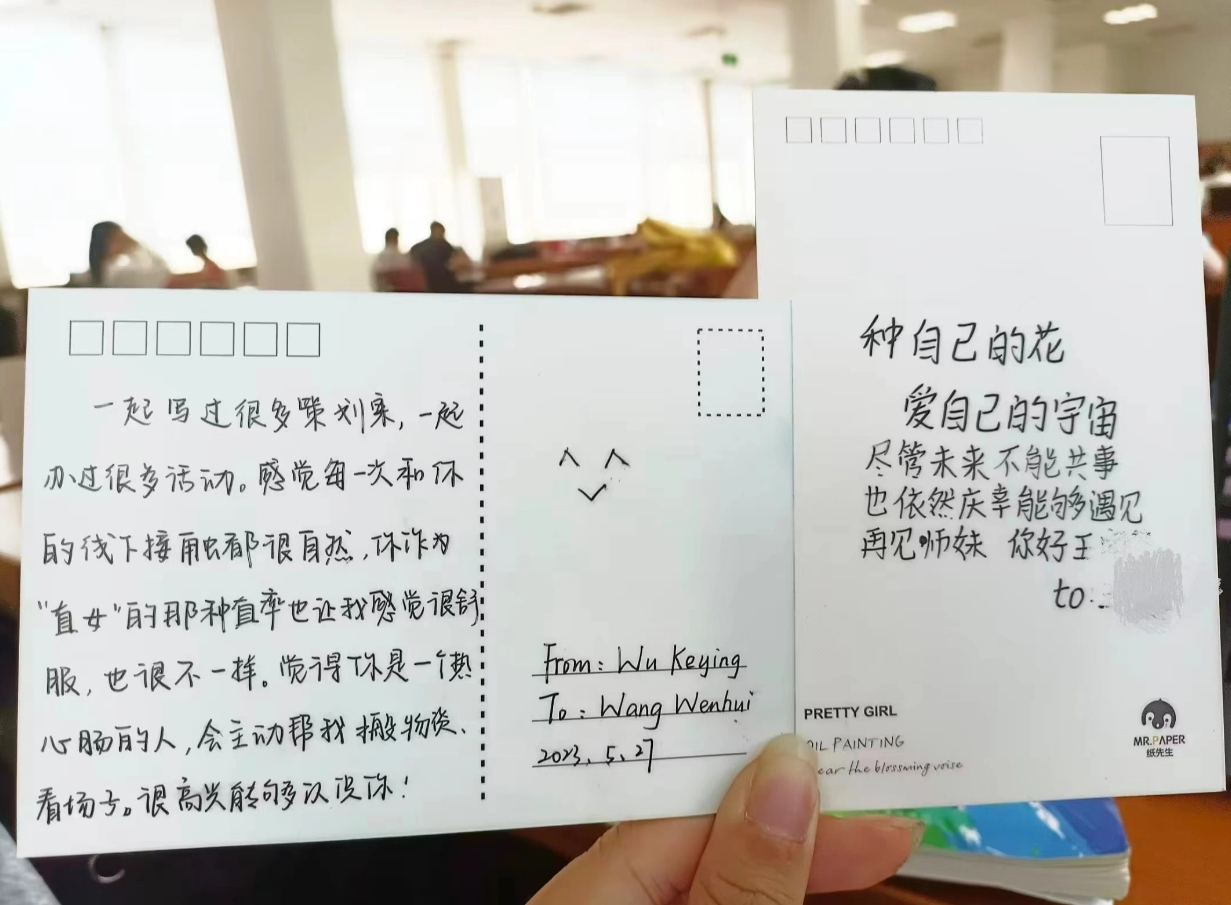 一起写过很多策划案，一起
办过很多活动。感觉每一次和你
的线下接触都很自然，你作为
“直女”的那种直率也让我感觉很舒
服，也很不一样。觉得你是一个热
心肠的人，会主动帮我搬物资、
看场子。很高兴能够多次认识你！
From: Wu Keying
To: Wang Wenhui
2023.5.27
种自己的花
爱自己的宇宙
尽管未来不能共事
也依然庆幸能够遇见
再见师妹 你好王
to:
PRETTY GIRL
OIL PAINTING
ear the blossming voise
MR.PAPER
纸先生